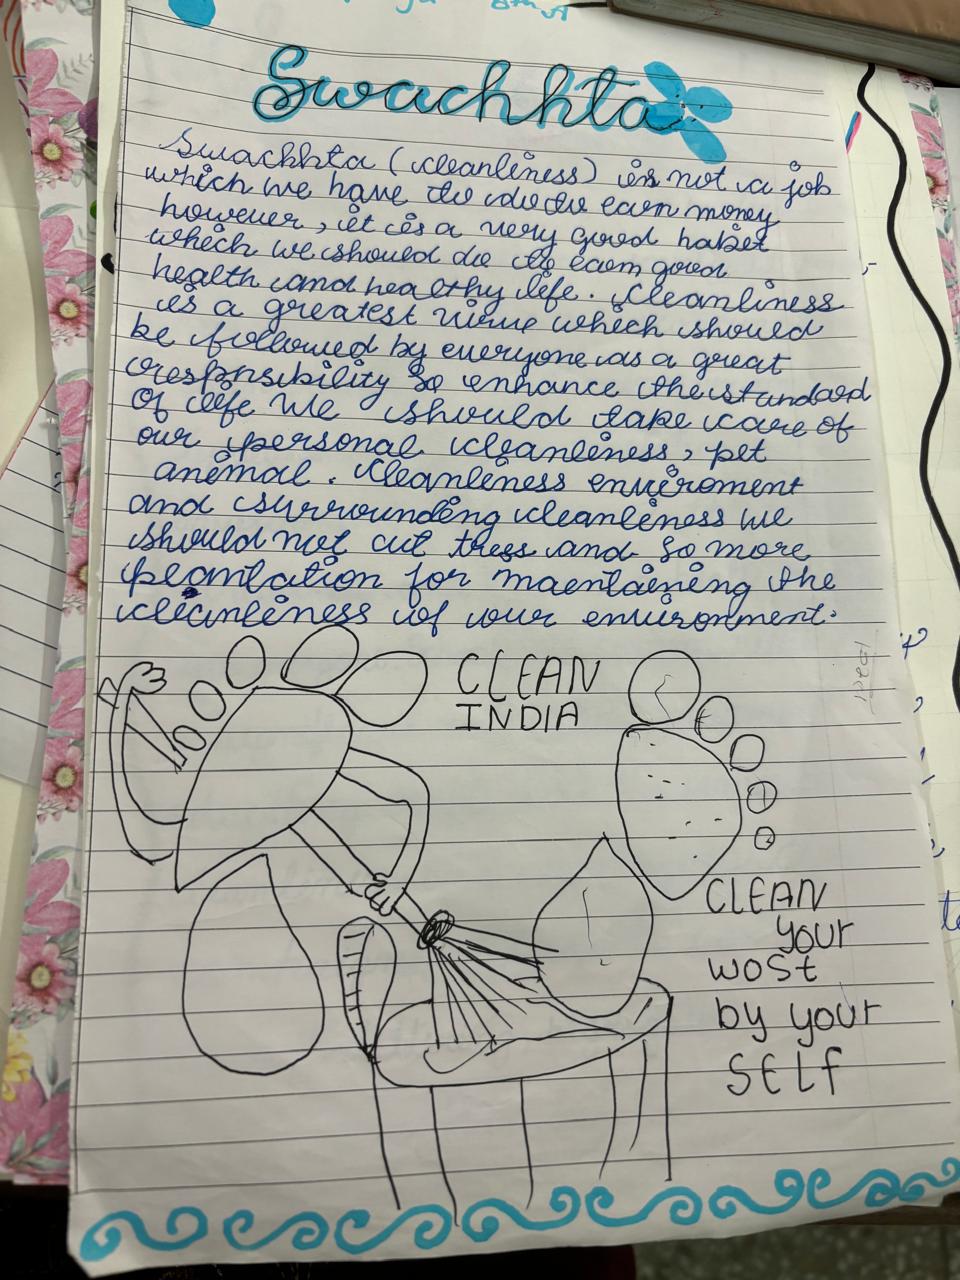 8th A
Swachhta
Swachhta (cleanliness) is not a job
which we have to do to earn money
however, it is a very good habit
which we should do to earn good
health and healthy life. Cleanliness
is a greatest virue which should
be followed by everyone as a great
responsibility so enhance the standard
of life we should take care of
our personal cleanliness, pet
animal. Cleanliness enviroment
and surrounding cleanliness we
should not cut tress and so more
plantation for maentaining the
cleanliness of our environment.
CLEAN
INDIA
CLEAN
your
wost
by your
SELF